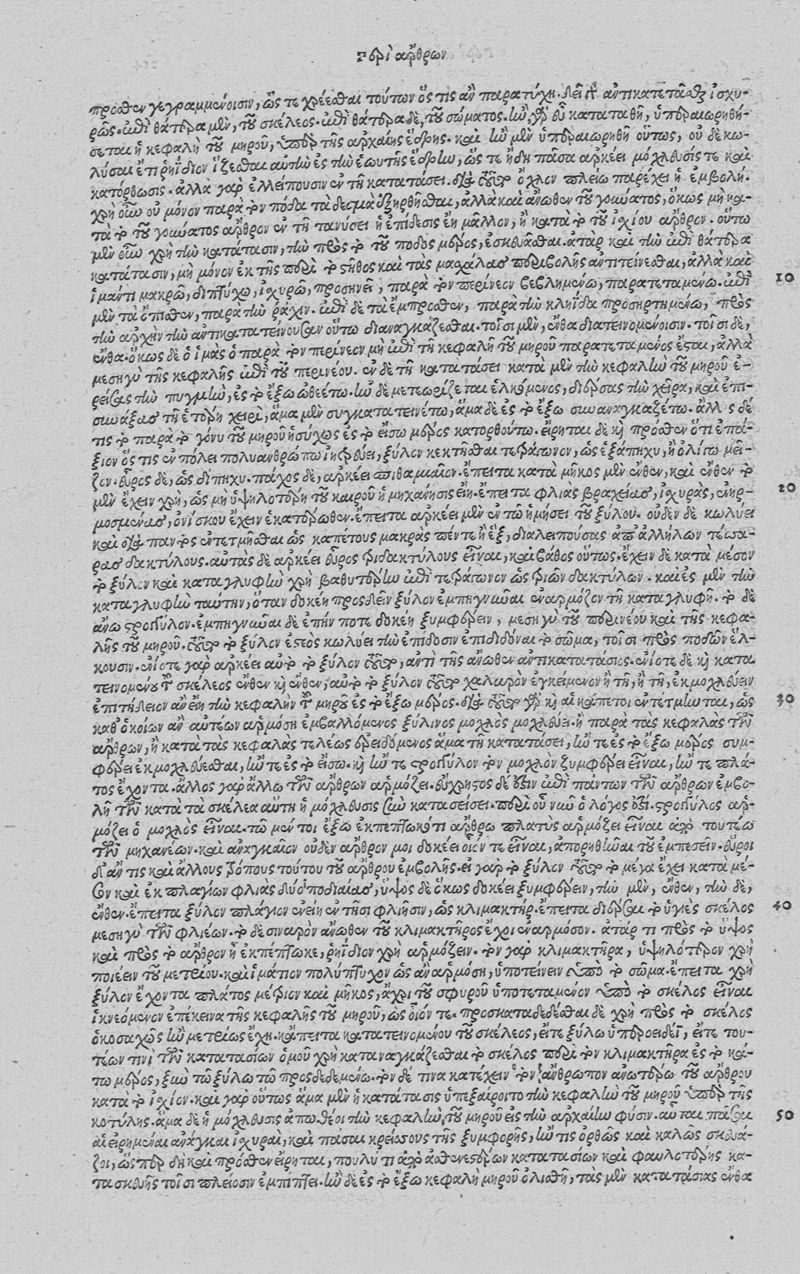 περὶ ἄρθρων
πρόσθεν γεγραμμένοισιν, ὥς τε χρέεσθαι τούτων ὅς τις ἂν παρατύχῃ. δεῖ δ' ἀντικατετάσθαι ἰσχυ-
ρῶς. ἐπὶ θάτερα μὲν, τοῦ σκέλεος. ἐπὶ θάτερα δὲ, τοῦ σώματος. ἢν γὰρ εὖ καταταθῇ, ὑπεραιωρηθή-
σεται ἡ κεφαλὴ τοῦ μηροῦ, ὑπὲρ τῆς ἀρχαίης ἕδρης. καὶ ἢν μὲν ὑπεραιωρηθῇ οὕτως, οὐδὲ κω-
λῦσαι ἔτι ῥηΐδιον ἵζεσθαι αὐτὴν ἐς τὴν ἑωυτῆς ἕδρην, ὥς τε ἤδη πᾶσα ἀρκέει μόχλευσίς τε καὶ
κατόρθωσις. ἀλλὰ γὰρ ἐλλείπουσιν ἐν τῇ κατατάσει. διὰ τοῦτο ὄχλον πλείω παρέχει ἡ ἐμβολή.
χρὴ οὖν οὐ μόνον παρὰ τὸν πόδα τὰ δεσμὰ ἐξηρτῆσθαι, ἀλλὰ καὶ ἄνωθεν τοῦ γούνατος, ὅκως μὴ κα-
τὰ τὸ τοῦ γούνατος ἄρθρον ἐν τῇ τανύσει ἡ ἐπίδεσις ἔῃ μᾶλλον, ἢ κατὰ τὸ τοῦ ἰσχίου ἄρθρον. οὕτω
μὲν οὖν χρὴ τὴν κατάτασιν, τὴν πρὸς τὸ τοῦ ποδὸς μέρος, ἐσκευάσθαι. ἀτὰρ καὶ τὴν ἐπὶ θάτερα
κατάτασιν, μὴ μόνον ἐκ τῆς περὶ τὸ στῆθος καὶ τὰς μασχάλας περιβολῆς ἀντιτείνεσθαι, ἀλλὰ καὶ
ἱμάντι μακρῷ, διπτύχῳ, ἰσχυρῷ, προσηνεῖ, παρὰ τὸν περίνεον βεβλημένῳ, παρατεταμένῳ. ἐπὶ 10
μὲν τὰ ὄπισθεν, παρὰ τὴν ῥάχιν. ἐπὶ δὲ τὰ ἔμπροσθεν, παρὰ τὴν κληΐδα προσηρτημένῳ, πρὸς
τὴν ἀρχὴν τὴν ἀντικατατείνουσαν οὕτω διαναγκάζεσθαι. τοῖσι μὲν, ἔνθα διατεινομένοισιν. τοῖσι δὲ,
ἔνθα. ὅκως δὲ ὁ ἱμὰς ὁ παρὰ τὸν περίνεον μὴ ἐπὶ τῇ κεφαλῇ τοῦ μηροῦ παρατεταμένος ἔσται, ἀλλὰ
μεσηγὺ τῆς κεφαλῆς ἐπὶ τοῦ περινέου. ἐν δὲ τῇ κατατάσει κατὰ μὲν τὴν κεφαλὴν τοῦ μηροῦ ἐ-
ρείσας τὴν πυγμὴν, ἐς τὸ ἔξω ὠθείτω. ἢν δὲ μετεωρίζεται ἑλκόμενος, διέρσας τὴν χεῖρα, καὶ ἐπι-
συνάξας τῇ ἑτέρῃ χειρὶ, ἅμα μὲν συγκατατεινέτω, ἅμα δὲ ἐς τὸ ἔξω συναναγκαζέτω. ἄλλος δέ
τις τὸ παρὰ τὸ γόνυ τοῦ μηροῦ ἡσύχως ἐς τὸ εἴσω μέρος κατορθούτω. εἴρηται δὲ καὶ πρόσθεν ὅτι ἐπά-
ξιον ὅς τις ἐν πόλει πολυανθρώπῳ ἰητρεύει, ξύλον κεκτῆσθαι τετράγωνον, ὡς ἑξάπηχυ, ἢ ὀλίγῳ μεῖ-
ζον. εὖρος δὲ, ὡς δίπηχυ. πάχος δὲ, ἀρκέει σπιθαμιαῖον. ἔπειτα κατὰ μῆκος μὲν ἔνθεν, καὶ ἔνθεν τὸ
μὲν ἔχειν χρὴ, ὡς μὴ ὑψηλοτέρη τοῦ καιροῦ ἡ μηχάνησις εἴη. ἔπειτα φλιὰς βραχείας, ἰσχυρὰς, ἐνηρ- 20
μοσμένας, ὀνίσκον ἔχειν ἑκατέρωθεν. ἔπειτα ἀρκέει μὲν ἐν τῷ ἡμίσει τοῦ ξύλου. οὐδὲν δὲ κωλύει
καὶ διὰ παντὸς ἐντετμῆσθαι ὡς καπέτους μακρὰς πέντε ἢ ἓξ, διαλειπούσας ἀπ' ἀλλήλων τέσσα-
ρας δακτύλους. αὐτὰς δὲ ἀρκέει εὖρος τριδακτύλους εἶναι, καὶ βάθος οὕτως. ἔχειν δὲ κατὰ μέσον
τὸ ξύλον καὶ καταγλυφὴν χρὴ βαθυτέρην ἐπὶ τετράγωνον ὡς τριῶν δακτύλων. καὶ ἐς μὲν τὴν
καταγλυφὴν ταύτην, ὅταν δοκέῃ προσδεῖν ξύλον ἐμπηγνύναι ἐναρμόζον τῇ καταγλυφῇ. τὸ δὲ
ἄνω στρογγύλον. ἐμπηγνύναι δὲ ἐπήν ποτε δοκέῃ ξυμφέρειν, μεσηγὺ τοῦ περινέου καὶ τῆς κεφα-
λῆς τοῦ μηροῦ. τοῦτο τὸ ξύλον ἑστεὸς κωλύει τὴν ἐπίδοσιν ἐπιδιδόναι τὸ σῶμα, τοῖσι πρὸς ποδῶν ἕλ-
κουσιν. ἐνίοτε γὰρ ἀρκέει αὐτὸ τὸ ξύλον τοῦτο, ἀντὶ τῆς ἄνωθεν ἀντικατατάσιος. ἐνίοτε δὲ καὶ κατα
τεινομένου τοῦ σκέλεος ἔνθεν καὶ ἔνθεν, αὐτὸ τὸ ξύλον τοῦτο χαλαρὸν ἐγκείμενον ἢ τῇ, ἢ τῇ, ἐκμοχλεύειν
ἐπιτήδειον ἂν ἔῃ τὴν κεφαλὴν τοῦ μηροῦ ἐς τὸ ἔξω μέρος. διὰ τοῦτο γὰρ καὶ αἱ κάπετοι ἐντετμέαται, ὡς 30
καθ' ὁκοίην ἂν αὐτέων ἁρμόσῃ ἐμβαλλόμενος ξύλινος μοχλὸς μοχλεύῃ. ἢ παρὰ τὰς κεφαλὰς τῶν
ἄρθρων, ἢ κατὰ τὰς κεφαλὰς τελέως ἐρειδόμενος ἅμα τῇ κατατάσει, ἤν τε ἐς τὸ ἔξω μέρος συμ-
φέρῃ ἐκμοχλεύεσθαι, ἤν τε ἐς τὸ εἴσω. καὶ ἤν τε στρογγύλον τὸν μοχλὸν ξυμφέρει εἶναι, ἤν τε πλά-
τος ἔχοντα. ἄλλος γὰρ ἄλλῳ τῶν ἄρθρων ἁρμόζει. εὔχρηστος δέ ἐστιν ἐπὶ πάντων τῶν ἄρθρων ἐμβο-
λῇ τῶν κατὰ τὰ σκέλεα αὕτη ἡ μόχλευσις ξὺν κατασείσει. περὶ οὗ νῦν ὁ λόγος ἐστὶ. στρογγύλος ἁρ-
μόζει ὁ μοχλὸς εἶναι. τῷ μέντοι ἔξω ἐκπεπτωκότι ἄρθρῳ πλατὺς ἁρμόζει εἶναι. ἀπὸ τουτέων
τῶν μηχανέων. καὶ ἀναγκαίων οὐδὲν ἄρθρον μοι δοκέει οἷόν τε εἶναι, ἀπορηθῆναι τοῦ ἐμπεσεῖν. εὕροι
δ' ἄν τις καὶ ἄλλους τρόπους τούτου τοῦ ἄρθρου ἐμβολῆς. εἰ γὰρ τὸ ξύλον τοῦτο τὸ μέγα ἔχει κατὰ μέ-
σον καὶ ἐκ πλαγίων φλιὰς δύο ποδιαίας, ὕψος δὲ ὅκως δοκέει ξυμφέρειν, τὴν μὲν, ἔνθεν, τὴν δὲ,
ἔνθεν. ἔπειτα ξύλον πλάγιον ἐνείη ἐν τῇσι φλιῇσιν, ὡς κλιμακτήρ. ἔπειτα διέρσαι τὸ ὑγιὲς σκέλος 40
μεσηγὺ τῶν φλιέων. τὸ δὲ σιναρὸν ἄνωθεν τοῦ κλιμακτῆρος ἔχοι ἐναρμόσον. ἀτάρ τι πρὸς τὸ ὕψος
καὶ πρὸς τὸ ἄρθρον ᾗ ἐκπέπτωκε, ῥηΐδιον χρὴ ἁρμόζειν. τὸν γὰρ κλιμακτῆρα, ὑψηλότερον χρὴ
ποιέειν τοῦ μετρίου. καὶ ἱμάτιον πολύπτυχον ὡς ἂν ἁρμόσῃ, ὑποτείνειν ὑπὸ τὸ σῶμα. ἔπειτα χρὴ
ξύλον ἔχοντα πλάτος μέτριον καὶ μῆκος, ἄχρι τοῦ σφυροῦ ὑποτεταμένον ὑπὸ τὸ σκέλος εἶναι
ἱκνεόμενον ἐπέκεινα τῆς κεφαλῆς τοῦ μηροῦ, ὡς οἷόν τε. προσκαταδεδέσθαι δὲ χρὴ πρὸς τὸ σκέλος
ὁκοσαχῶς ἢν μετρίως ἔχῃ. κἄπειτα κατατεινομένου τοῦ σκέλεος, εἴτε ξύλῳ ὑπεροειδεῖ, εἴτε του-
τέων τινὶ τῶν κατατασίων ὁμοῦ χρὴ καταναγκάζεσθαι τὸ σκέλος περὶ τὸν κλιμακτῆρα ἐς τὸ κά-
τω μέρος, ξὺν τῷ ξύλῳ τῷ προσδεδεμένῳ. τὸν δέ τινα κατέχειν τὸν ἄνθρωπον ἀνωτέρω τοῦ ἄρθρου
κατὰ τὸ ἰσχίον. καὶ γὰρ οὕτως ἅμα μὲν ἡ κατάτασις ὑπεξαίροι τὴν κεφαλὴν τοῦ μηροῦ ὑπὲρ τῆς
κοτύλης. ἅμα δὲ ἡ μόχλευσις ἀπωθέοι τὴν κεφαλὴν, τοῦ μηροῦ εἰς τὴν ἀρχαίην φύσιν. αὗται πᾶσαι 50
αἱ εἰρημέναι ἀνάγκαι ἰσχυραὶ, καὶ πᾶσαι κρείσσους τῆς ξυμφορῆς, ἤν τις ὀρθῶς καὶ καλῶς σκευά-
ζοι, ὥσπερ δὴ καὶ πρόσθεν εἴρηται, πουλύ τι ἀπὸ ἀσθενεστέρων κατατασίων καὶ φαυλοτέρης κα-
τασκευῆς τοῖσι πλείοσιν ἐμπίπτει. ἢν δὲ ἐς τὸ ἔξω κεφαλὴ μηροῦ ὀλισθῇ, τὰς μὲν κατατάσιας ἔνθα